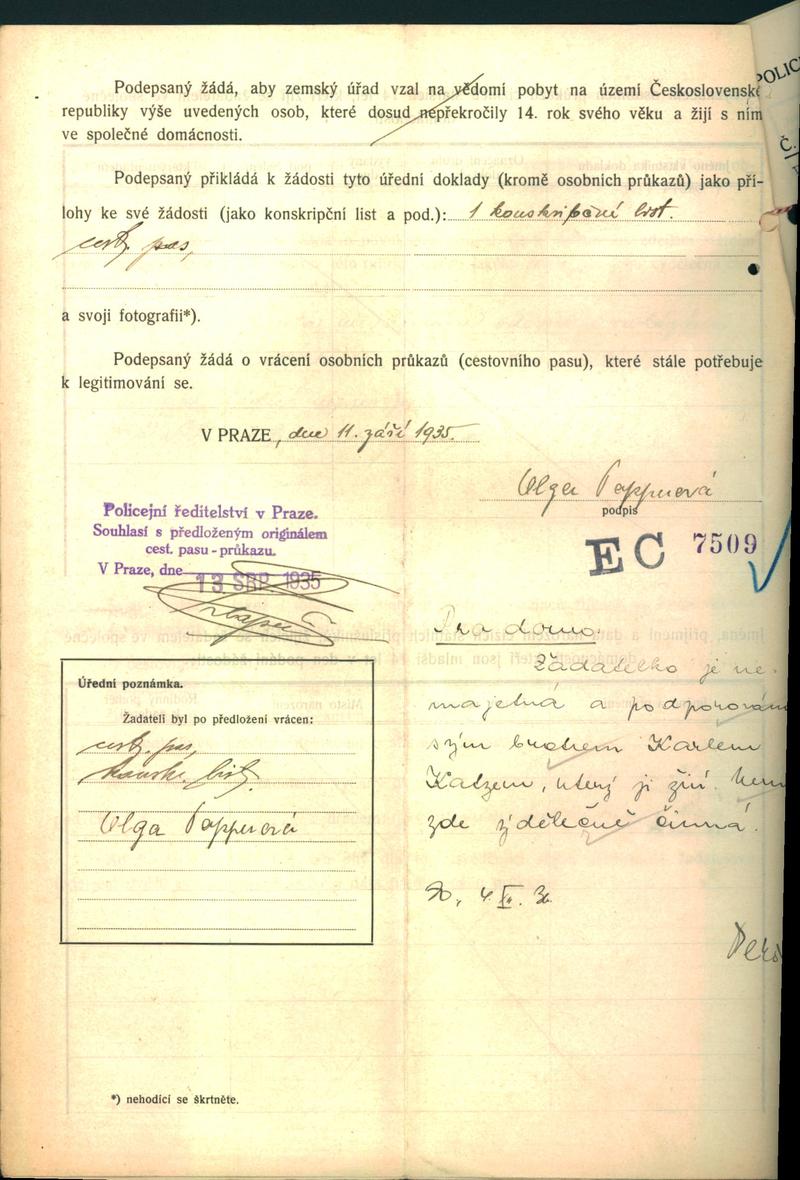 Podepsaný žádá, aby zemský úřad vzal na vědomí pobyt na území Československé
republiky výše uvedených osob, které dosud nepřekročily 14. rok svého věku a žijí s ním
ve společné domácnosti.
Podepsaný přikládá k žádosti tyto úřední doklady (kromě osobních průkazů) jako pří-
lohy ke své žádosti (jako konskripční list a pod.): 1 konskripční list.
cest. pas,
a svoji fotografii*).
Podepsaný žádá o vrácení osobních průkazů (cestovního pasu), které stále potřebuje
k legitimování se.
V PRAZE, dne 11. září 1935.
Olga Popperová
podpis
Policejní ředitelství v Praze.
Souhlasí s předloženým originálem
cest. pasu - průkazu.
V Praze, dne 13 SRP. 1935
EC 7509
Pro domo.
Žadatelka je ne-
majetná a podporován
svým bratrem Karlem
Katzem, který ji živí. Není
zde výdělečně činná.
4. 36
Úřední poznámka.
Žadateli byl po předložení vrácen:
cest. pas,
konskr. listy.
Olga Popperová
*) nehodící se škrtněte.
POLIC
Č.